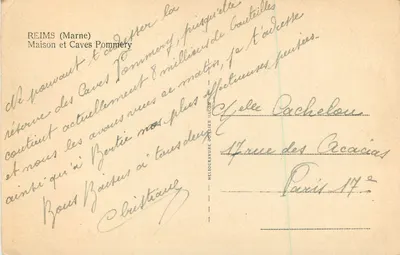 REIMS (Marne)
Maison et Caves Pommery
Ne pouvant t'adresser la
réserve des Caves Pommery, puisqu'elle
contient actuellement 8 millions de bouteilles
et nous les avons vues ce matin, je t'adresse
ainsi qu'à Bertie nos plus affectueuses pensées.
Bons Baisers à tous deux
Christiane
Melle Cachelou
17 rue des Acacias
Paris 17e